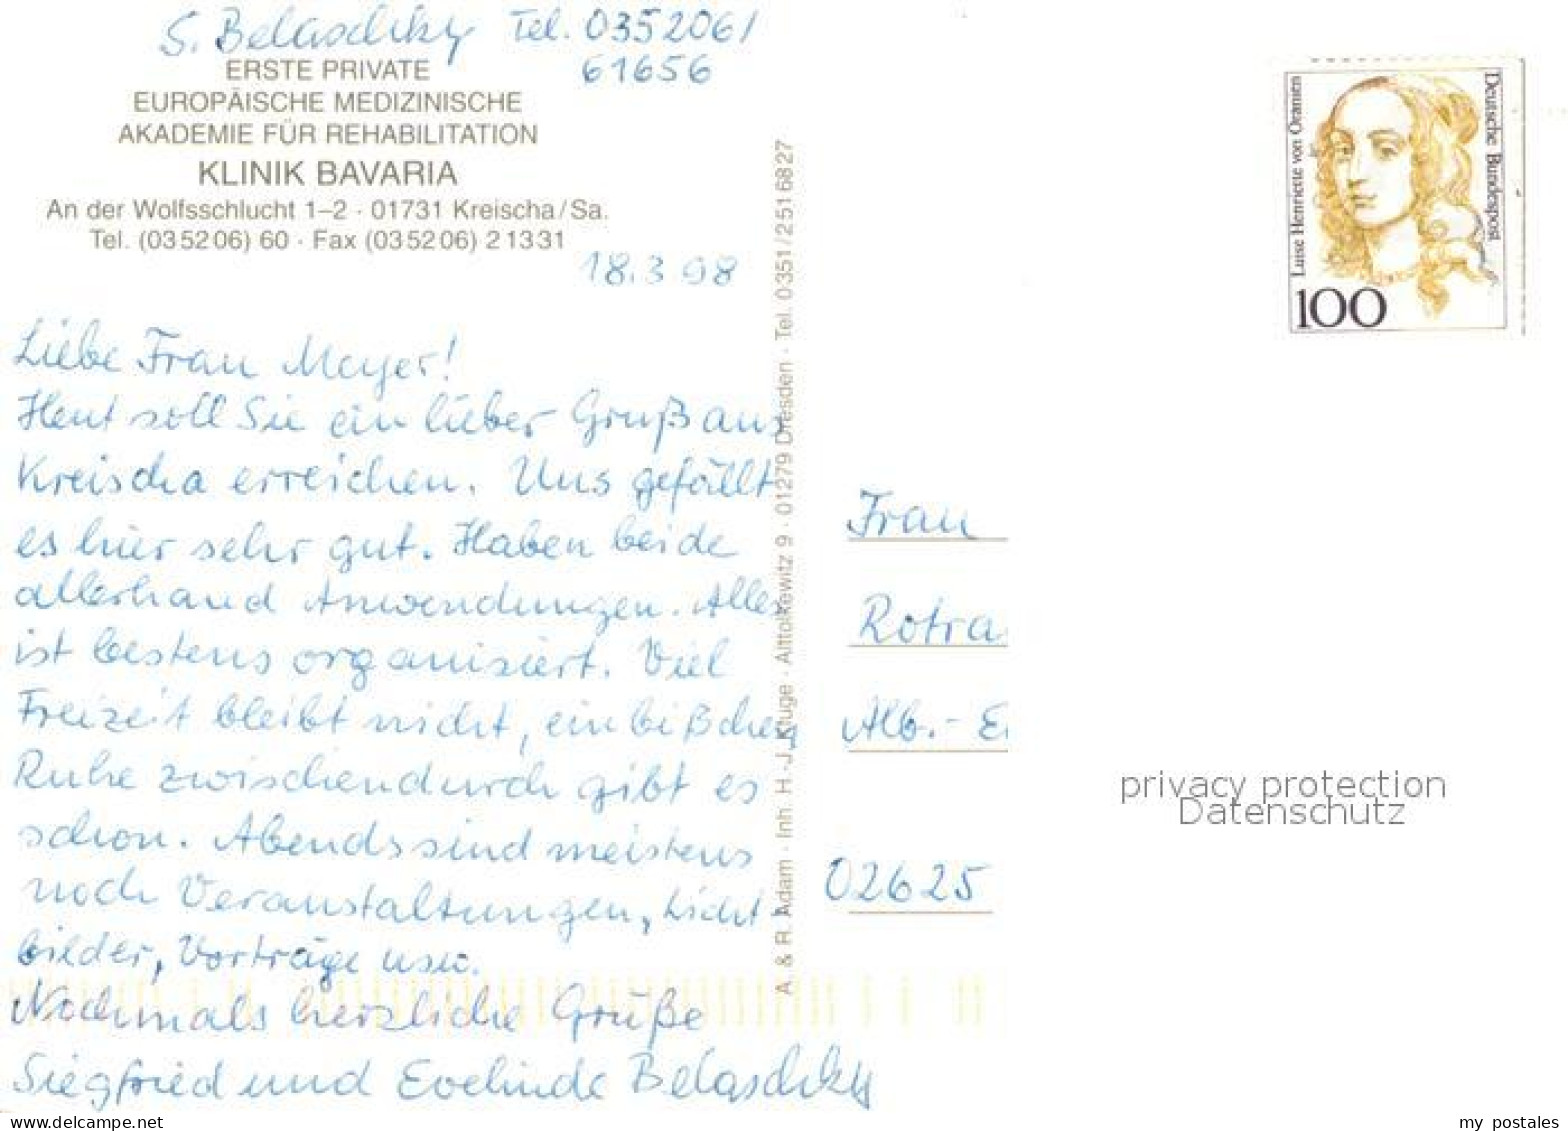 S. Belaschky Tel. 035206/
61656
ERSTE PRIVATE
EUROPÄISCHE MEDIZINISCHE
AKADEMIE FÜR REHABILITATION
KLINIK BAVARIA
An der Wolfsschlucht 1–2 · 01731 Kreischa/Sa.
Tel. (035206) 60 · Fax (035206) 21331
18.3 98
Liebe Frau Meyer!
Heut soll Sie ein lieber Gruß aus
Kreischa erreichen. Uns gefällt
es hier sehr gut. Haben beide
allerhand Anwendungen. Alles
ist bestens organisiert. Viel
Freizeit bleibt nicht, ein bißchen
Ruhe zwischendurch gibt es
schon. Abends sind meistens
noch Veranstaltungen, Licht-
bilder, Vorträge usw.
Nochmals herzliche Grüße
Siegfried und Evelinde Belaschky
A. & R. Adam · Inh. H.-J. Kluge · Alttolkewitz 9 · 01279 Dresden · Tel. 0351/2516827
Luise Henriette von Oranien
Deutsche Bundespost
100
Frau
Rotra
Alb.- E
02625
privacy protection
Datenschutz
delcampe.net
my_postales